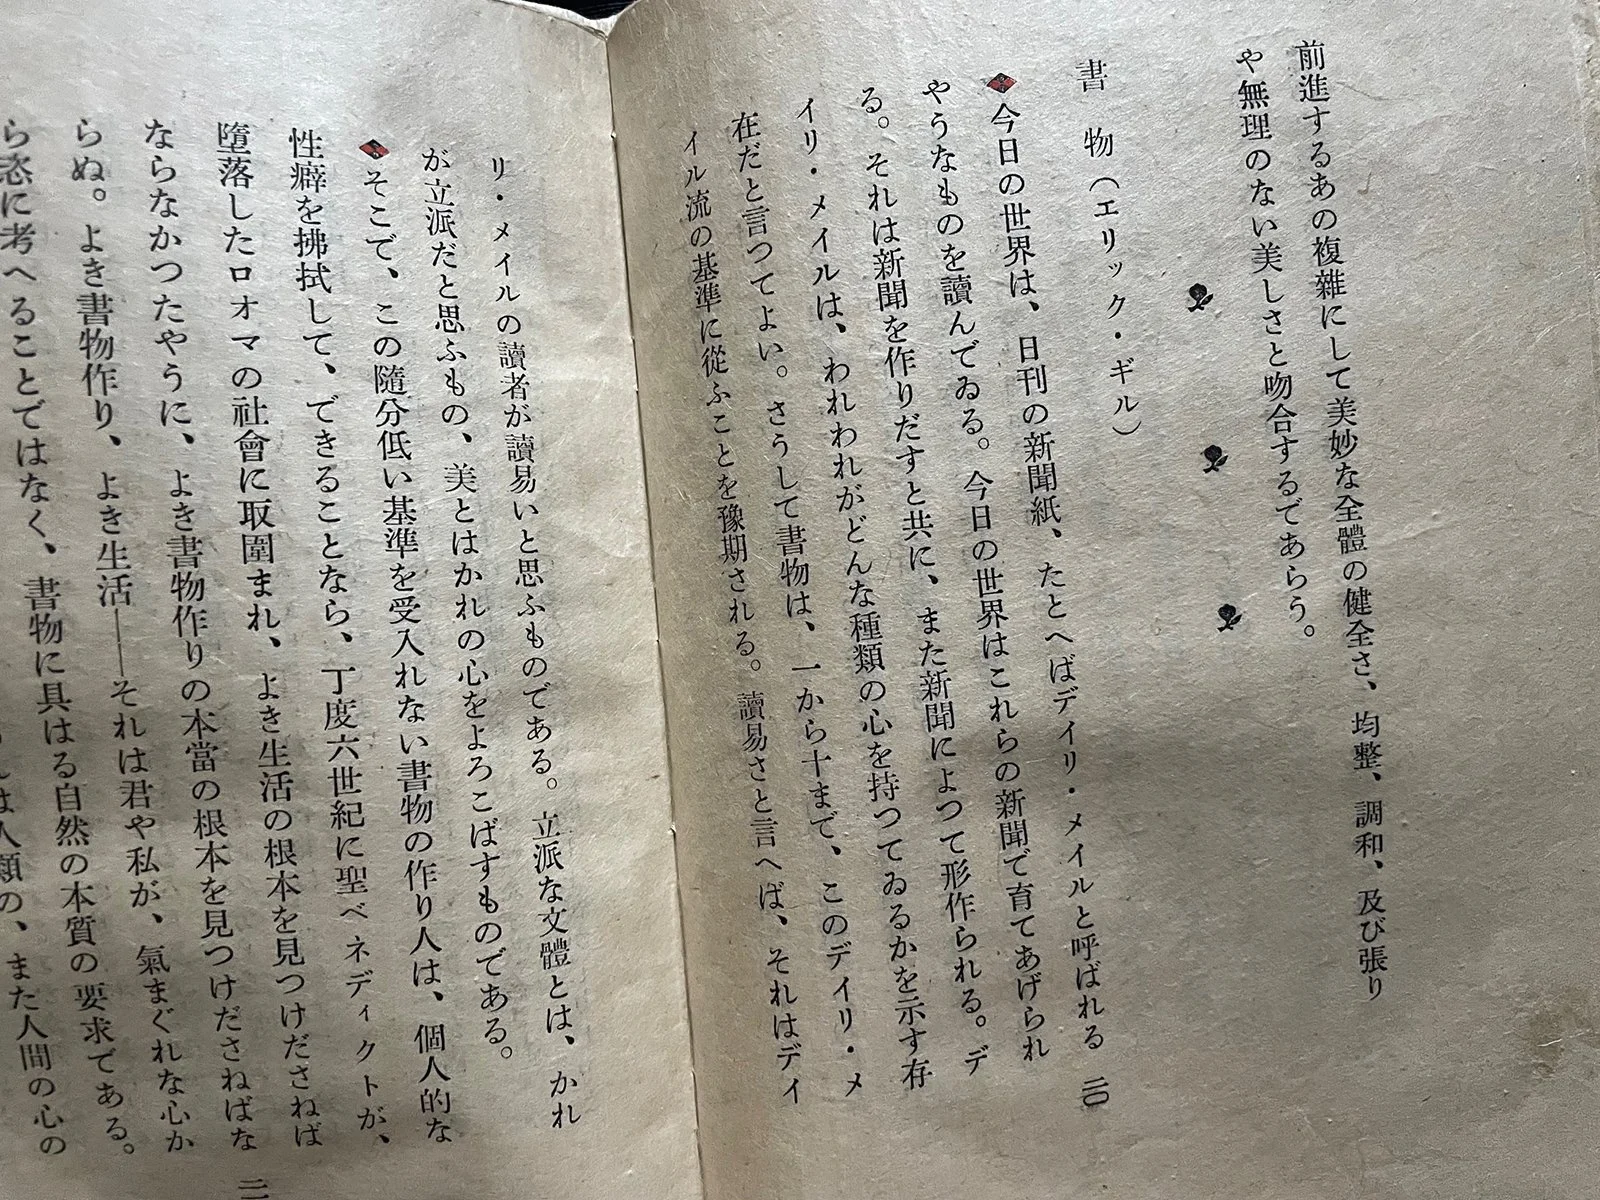 前進するあの複雜にして美妙な全體の健全さ、均整、調和、及び張り
や無理のない美しさと吻合するであらう。
書物（エリック・ギル）
今日の世界は、日刊の新聞紙、たとへばデイリ・メイルと呼ばれる
やうなものを讀んでゐる。今日の世界はこれらの新聞で育てあげられ
る。それは新聞を作りだすと共に、また新聞によつて形作られる。デ
イリ・メイルは、われわれがどんな種類の心を持つてゐるかを示す存
在だと言つてよい。さうして書物は、一から十まで、このデイリ・メ
イル流の基準に從ふことを豫期される。讀易さと言へば、それはデイ
二〇
リ・メイルの讀者が讀易いと思ふものである。立派な文體とは、かれ
が立派だと思ふもの、美とはかれの心をよろこばすものである。
そこで、この隨分低い基準を受入れない書物の作り人は、個人的な
性癖を拂拭して、できることなら、丁度六世紀に聖ベネディクトが、
墮落したロオマの社會に取圍まれ、よき生活の根本を見つけださねば
ならなかつたやうに、よき書物作りの本當の根本を見つけださねばな
らぬ。よき書物作り、よき生活――それは君や私が、氣まぐれな心か
ら恣に考へることではなく、書物に具はる自然の本質の要求である。
は人類の、また人間の心の